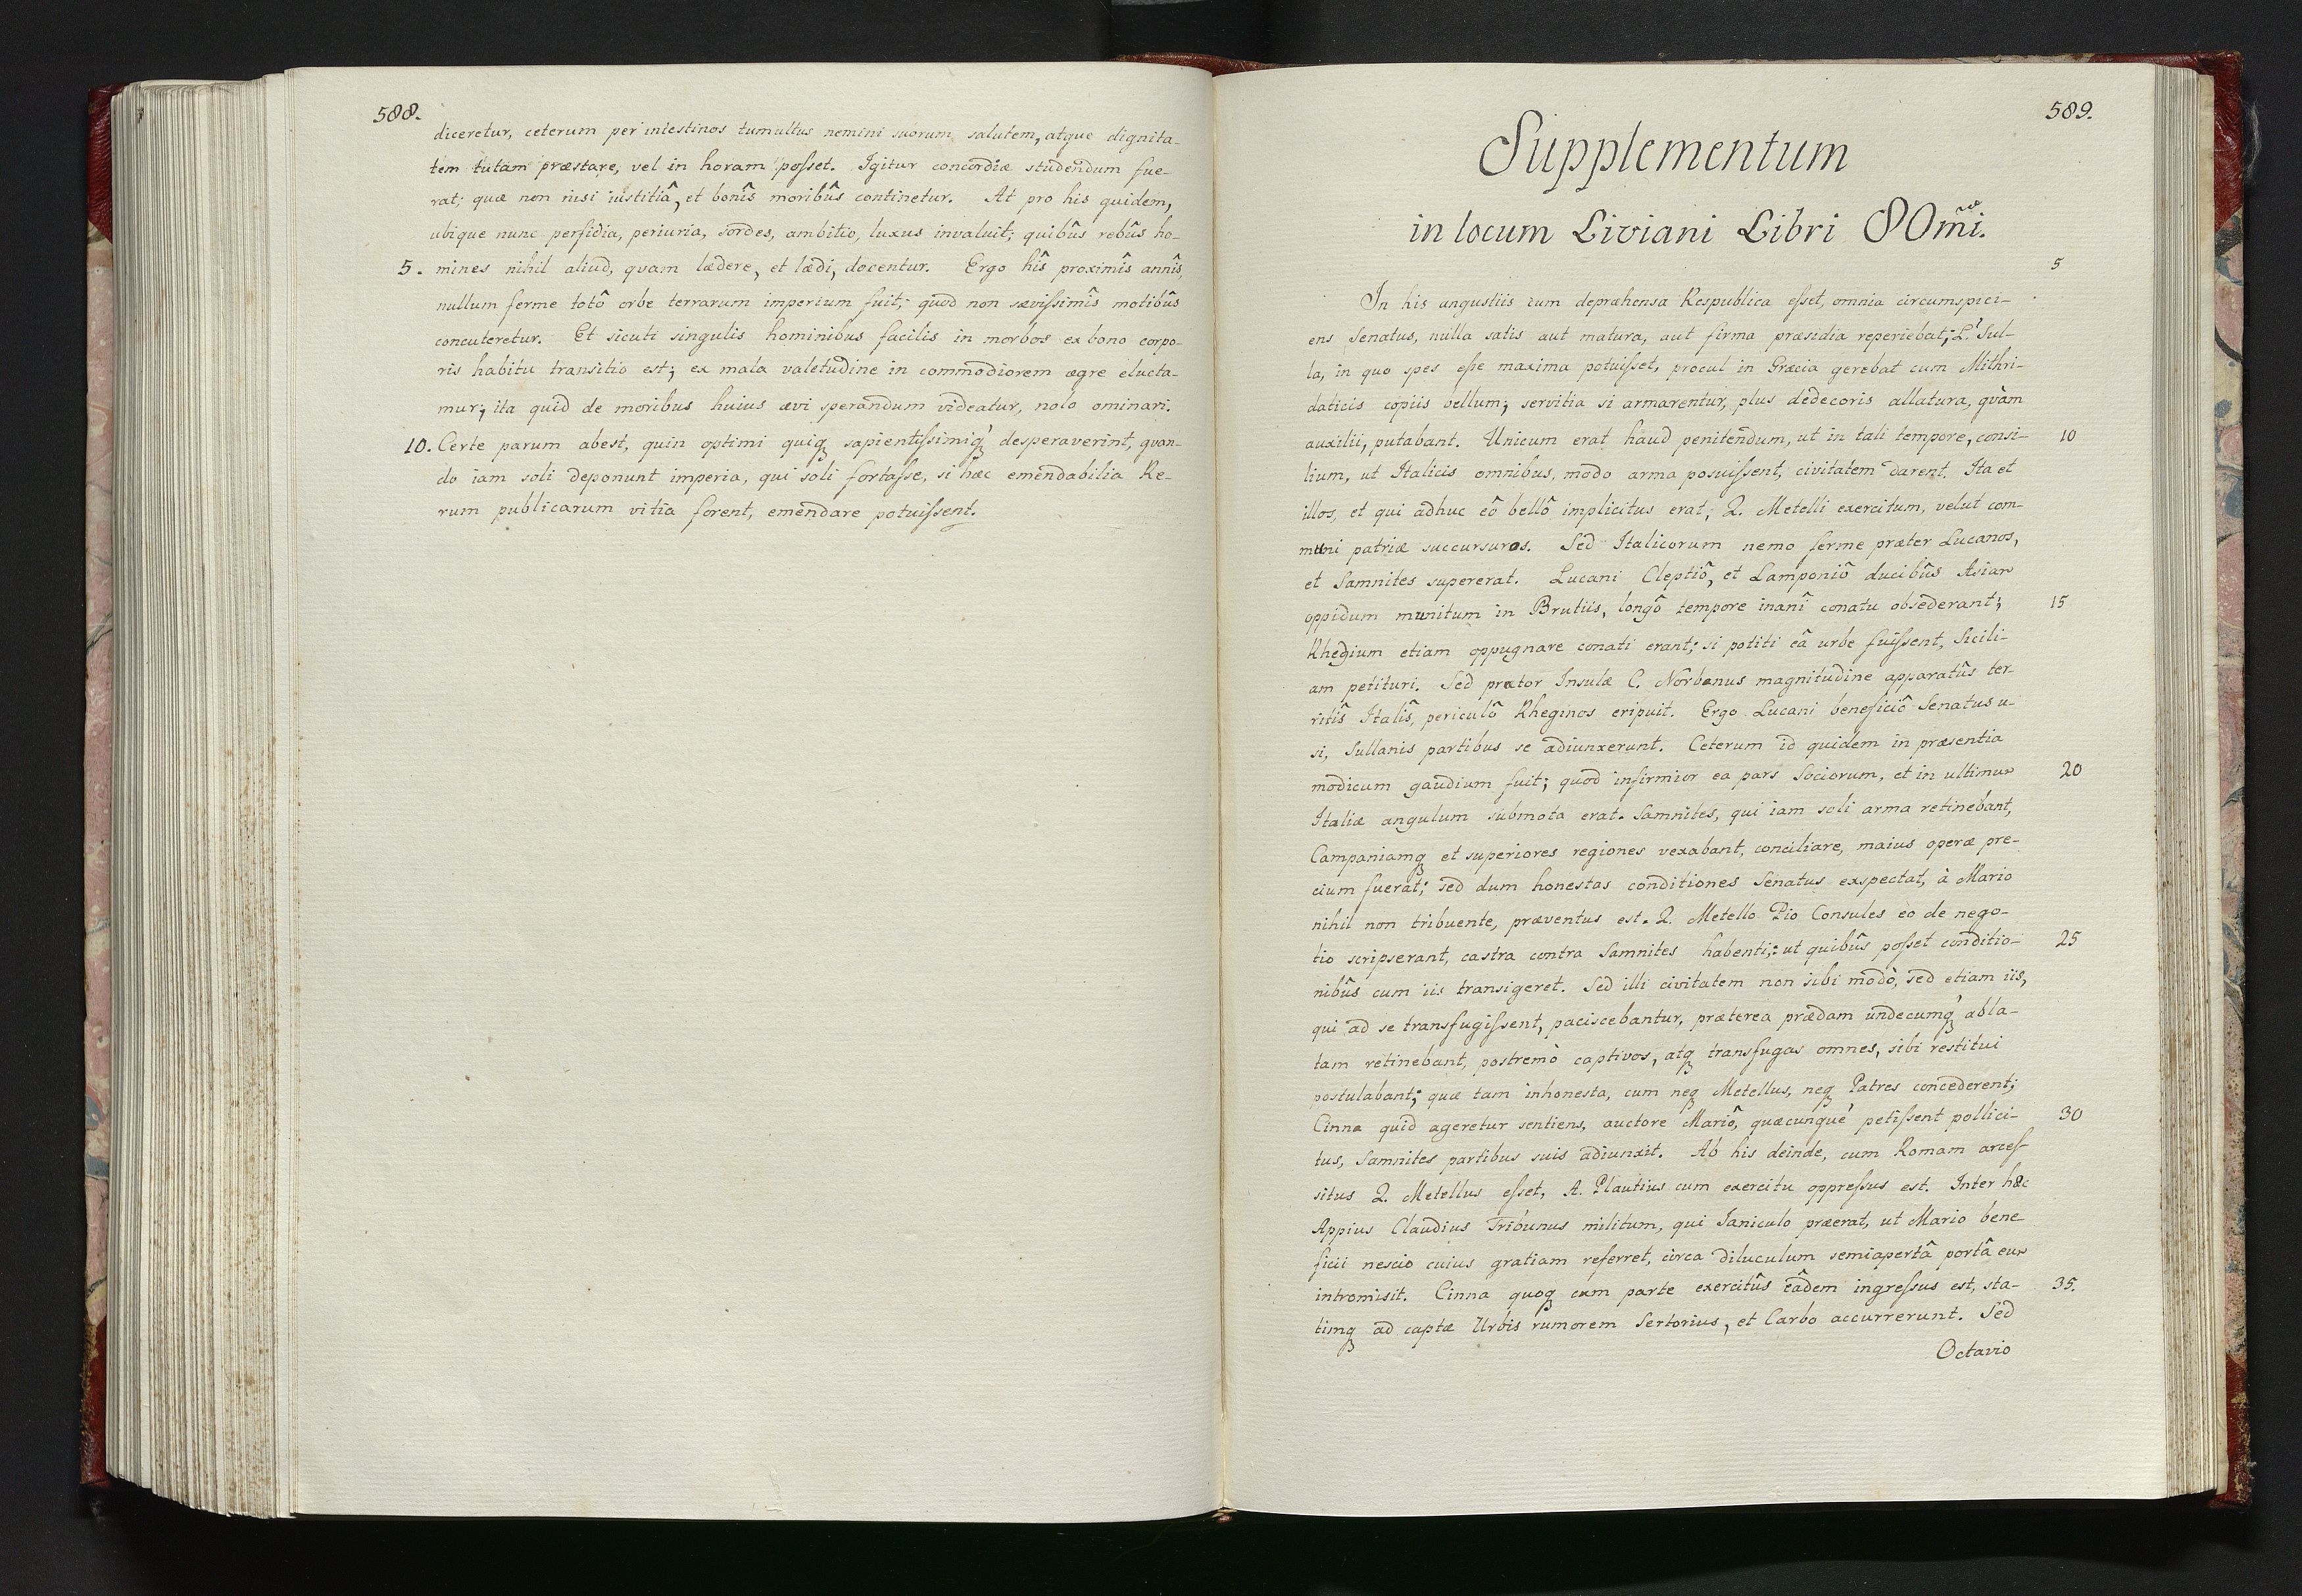 588.
diceretur, ceterum per intestinos tumultus nemini suorum salutem, atque dignita-
tem tutam præstare, vel in horam poſset. Igitur concordiæ studendum fue-
rat; quæ non nisi iustitiâ, et bonîs moribûs continetur. At pro his quidem,
ubique nunc perfidia, periuria, sordes, ambitio, luxus invaluit; quibûs rebûs ho-
5. mines nihil aliud, quam lædere, et lædi, docentur. Ergo hîs proximîs annîs,
nullum ferme totô orbe terrarum imperium fuit; quod non sæviſsimîs motibûs
concuteretur. Et sicuti singulis hominibus facilis in morbos ex bono corpo-
ris habitu transitio est; ex mala valetudine in commodiorem ægre elucta-
mur; ita quid de moribus huius ævi sperandum videatur, nolo ominari.
10. Certe parum abest, quin optimi quiq sapientiſsimiq́ desperaverint, quan-
do iam soli deponunt imperia, qui soli fortaſse, si hæc emendabilia Re-
rum publicarum vitia forent, emendare potuiſsent.
589.
Supplementum
in locum Liviani Libri 80m̃i.
5
In his angustiis cum deprahensa Respublica eſset, omnia circumspici-
ens Senatus, nulla satis aut matura, aut firma præsidia reperiebat; L. Sul-
la, in quo spes eſse maxima potuiſset, procul in Græcia gerebat cum Mithri-
daticis copiis bellum; servitia si armarentur, plus dedecoris allatura, quàm
auxilii, putabant. Unicum erat haud penitendum, ut in tali tempore, consi- 10
lium, ut Italicis omnibus, modo arma posuiſsent, civitatem darent. Ita et
illos, et qui adhuc eô bellô implicitus erat, Q. Metelli exercitum, velut com-
muni patriæ succursuros. Sed Italicorum nemo ferme præter Lucanos,
et Samnites supererat. Lucani Cleptiô, et Lamponiô ducibûs Asian
oppidum munitum in Brutiis, longô tempore inanî conatu obsederant; 15
Rhegium etiam oppugnare conati erant; si potiti eâ urbe fuiſsent, Sicili-
am petituri. Sed prætor Insulæ C. Norbanus magnitudine apparatûs ter-
ritîs Italîs, periculô Rheginos eripuit. Ergo Lucani beneficiô Senatus u-
si, Sullanis partibus se adiunxerunt. Ceterum id quidem in præsentia
modicum gaudium fuit; quod infirmior ea pars Sociorum, et in ultimum 20
Italiæ angulum submota erat. Samnites, qui iam soli arma retinebant,
Campaniamq et superiores regiones vexabant, conciliare, maius operæ pre-
cium fuerat; sed dum honestas conditiones Senatus exspectat, à Mario
nihil non tribuente, præventus est. Q. Metello Pio Consules eo de nego-
tio scripserant, castra contra Samnites habenti; ut quibûs poſset conditio- 25
nibûs cum iis transigeret. Sed illi civitatem non sibi modò, sed etiam iis,
qui ad se transfugiſsent, paciscebantur, præterea prædam undecumq́ abla-
tam retinebant, postremò captivos, atq transfugas omnes, sibi restitui
postulabant; quæ tam inhonesta, cum neq Metellus, neq Patres concederent;
Cinna quid ageretur sentiens, auctore Mariô, quæcunque petiſsent pollici- 30
tus, Samnites partibus suis adiunxit. Ab his deinde, cum Romam arceſ-
situs Q. Metellus eſset, A. Plautius cum exercitu oppreſsus est. Inter hæc
Appius Claudius Tribunus militum, qui Ianiculo præerat, ut Mario bene
ficii nescio cuius gratiam referret, circa diluculum semiapertâ portâ eum
intromisit. Cinna quoq cum parte exercitûs eâdem ingreſsus est, sta- 35.
timq ad captæ Urbis rumorem Sertorius, et Carbo accurrerunt. Sed
Octavio